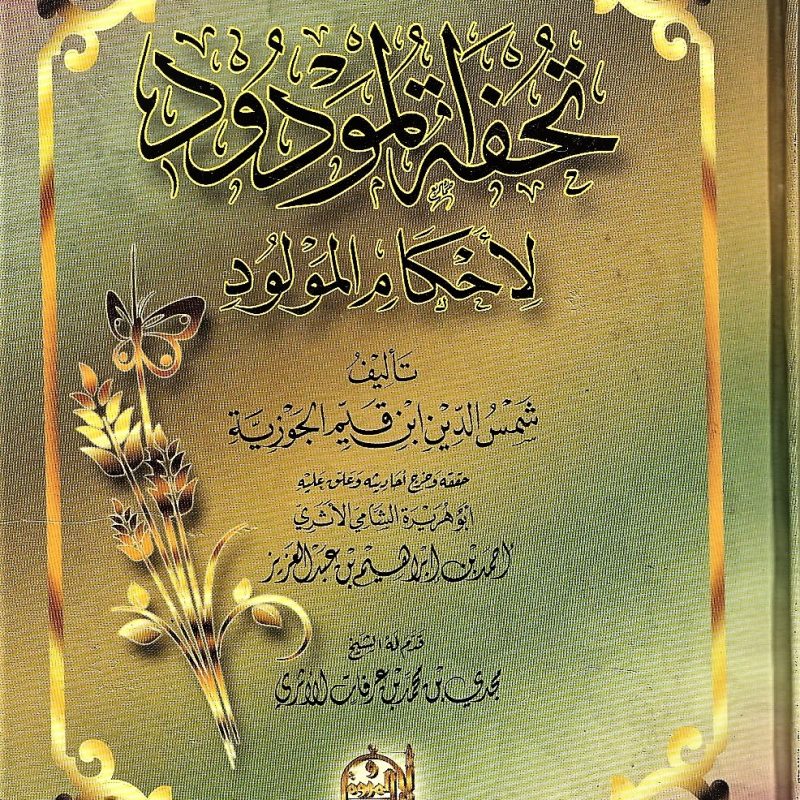 تُحْفَةُ المَوْدُودِ
لِأَحْكَامِ المَوْلُودِ
تَأليفُ
شَمْسُ الدِّين ابْن قَيِّم الجَوْزِيَّة
حققه وَخرج أحاديثه وَعلق عليه
أبُو هُرَيْرَة الشَّامي الأثَرِي
أحمد بن إبراهيم بن عبد العزيز
قدم له الشيخ
مجدي بن محمد بن عرفات الأثري